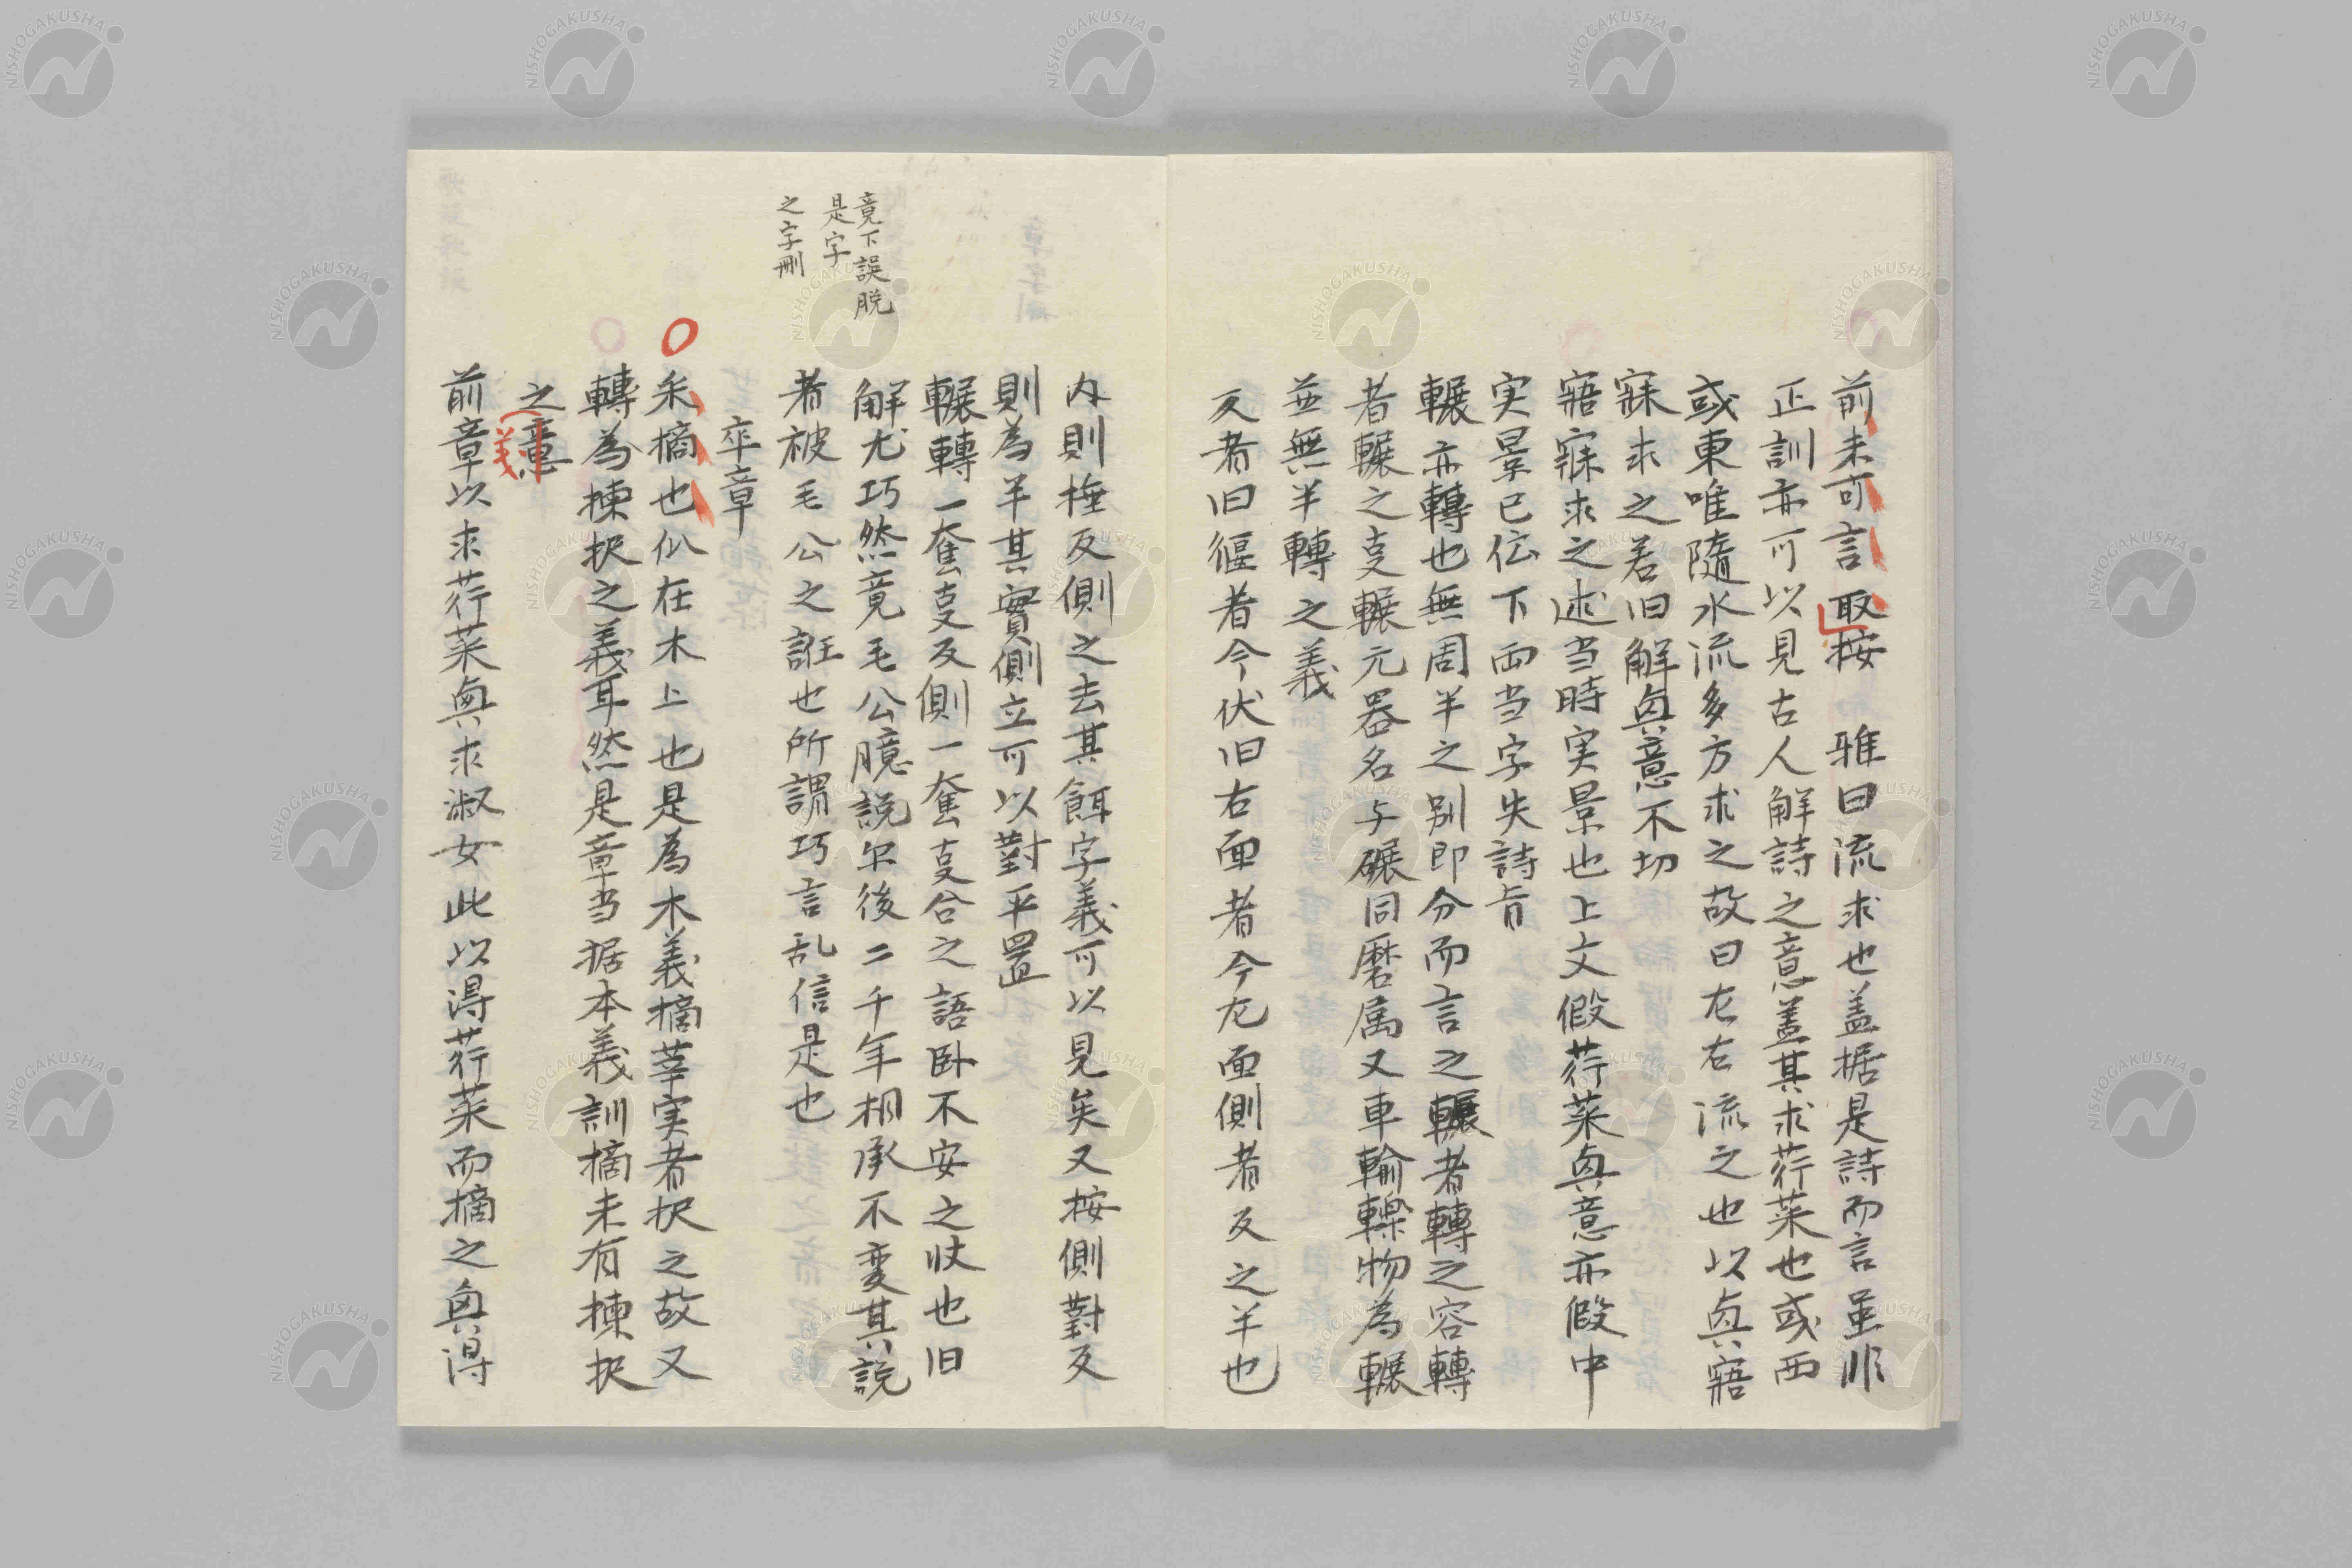 前未可言取按　雅曰流求也盖据是詩而言虽非
正訓亦可以見古人解詩之意盖其求荇菜也或西
或東唯隨水流多方求之故曰左右流之也以奥寤
寐求之若旧解奥意不切
寤寐求之述当時実景也上文假荇菜奥意亦假中
実景已伝下面当字失詩旨
輾亦轉也無周半之别即分而言之輾者轉之容轉
者輾之支輾元器名与碾同磨属又車輪轢物為輾
並無半轉之義
反者旧偃者今伏旧右面者今左面側者反之半也
内則捶反側之去其餌字義可以見矣又按側對反
則為半其實側立可以對平置
輾轉一奞支反側一奞支合之語臥不安之状也旧
解尤巧然竟毛公臆説尓後二千年相承不変其説
者被毛公之誑也所謂巧言乱信是也
竟下誤脱
是字
之字刪
卒章
采摘也从在木上也是為木義摘莘実者択之故又
轉為揀択之義耳然是章当据本義訓摘未有揀択
之意
義
前章以求荇菜奥求淑女此以得荇菜而摘之奥得
NISHOGAKUSHA